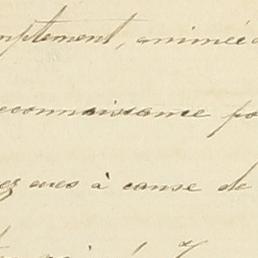 mptement, animée
reconnaissance po
ez eues à cause de